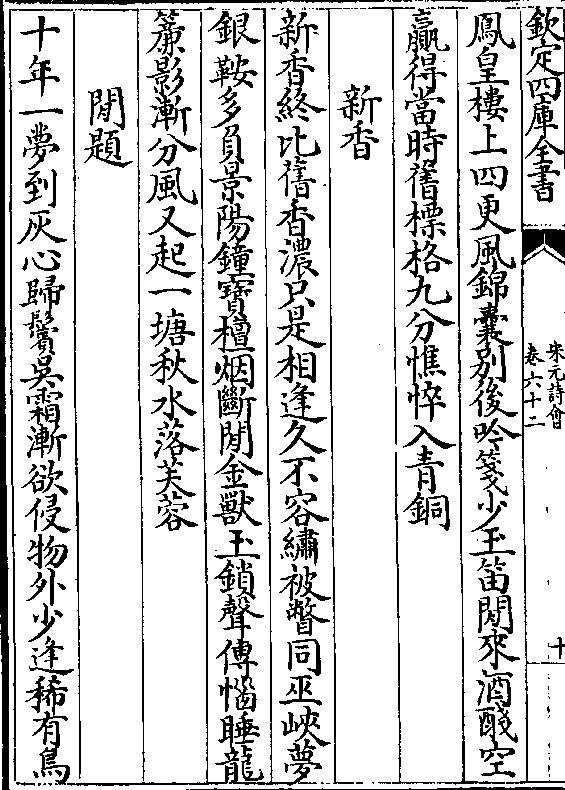 欽定四庫全書
宋元詩會
卷六十二
十
鳳皇樓上四更風錦囊别後吟箋少玉笛閒來酒醆空
贏得當時舊標格九分憔悴入青銅
新香
新香終比舊香濃只是相逢久不容繡被瞥同巫峽夢
銀鞍多負景陽鐘寶檀烟斷閒金獸玉鎖聲傳惱睡龍
簾影漸分風又起一塘秋水落芙蓉
閒題
十年一夢到灰心歸鬢吳霜漸欲侵物外少逢稀有鳥